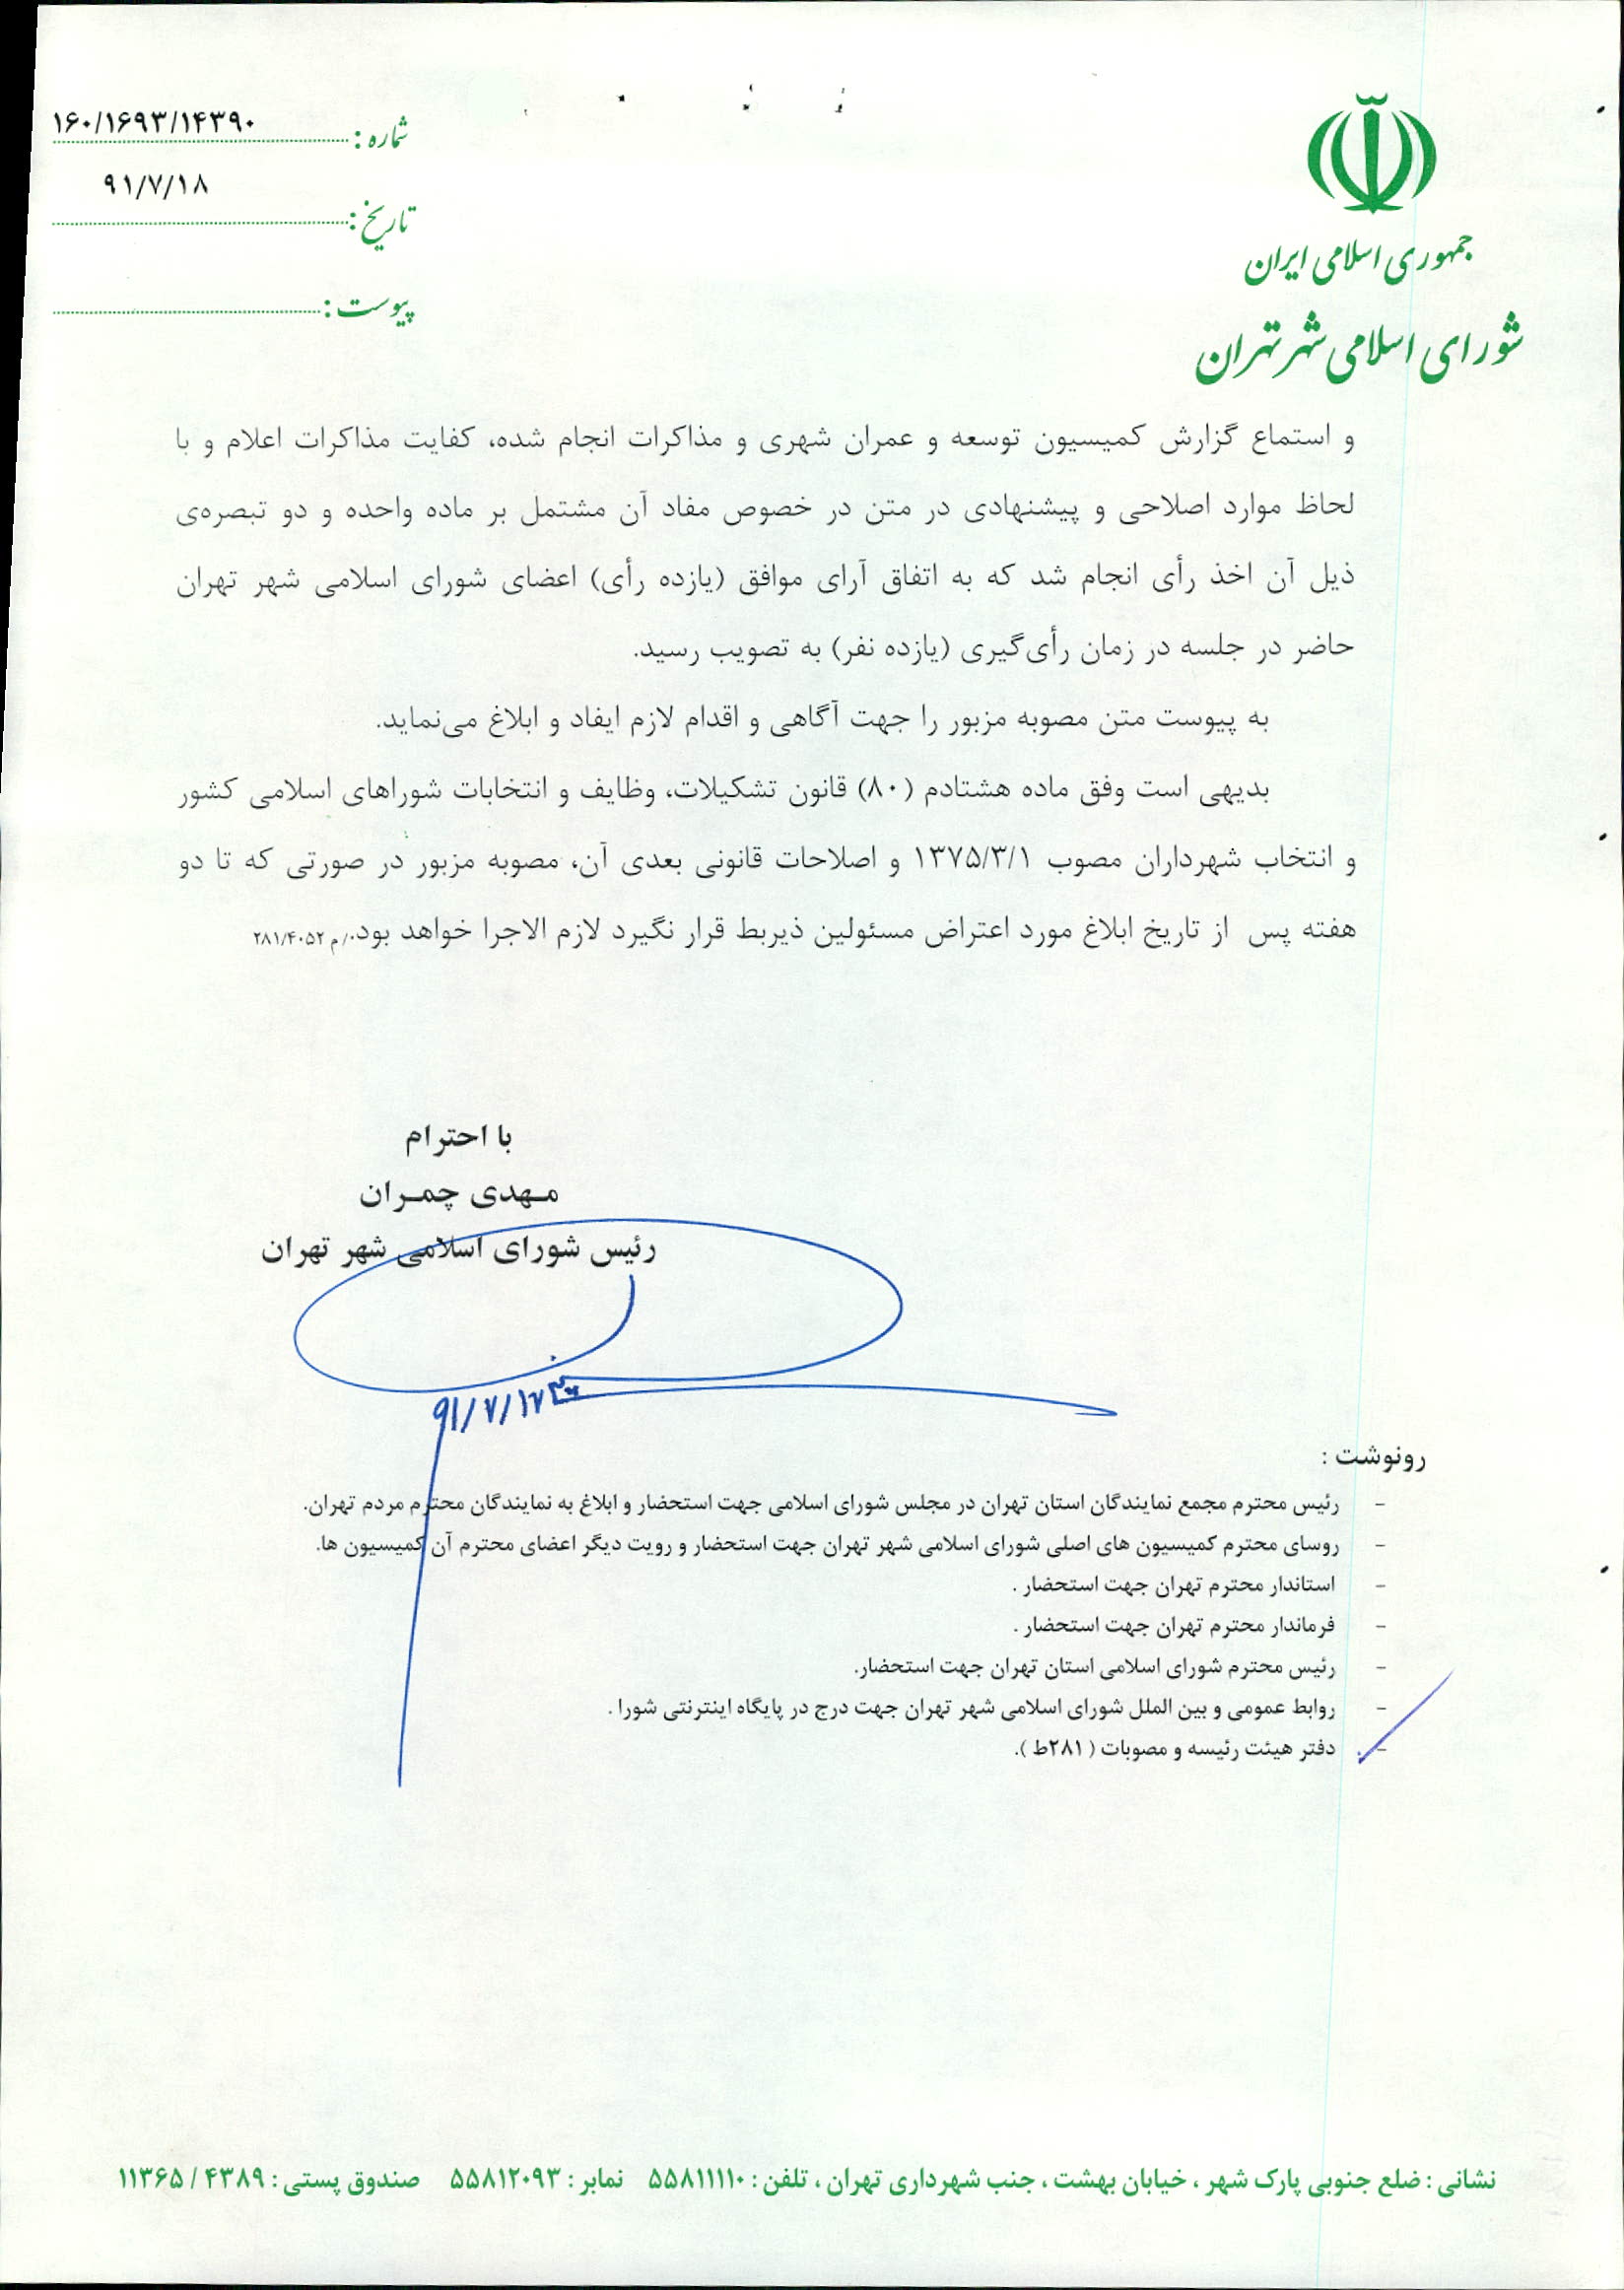 جمهوری اسلامی ایران
شورای اسلامی شهر تهران
شماره : ۱۶۰/۱۶۹۳/۱۴۳۹۰
تاریخ : ۹۱/۷/۱۸
پیوست :
و استماع گزارش کمیسیون توسعه و عمران شهری و مذاکرات انجام شده، کفایت مذاکرات اعلام و با
لحاظ موارد اصلاحی و پیشنهادی در متن در خصوص مفاد آن مشتمل بر ماده واحده و دو تبصره‌ی
ذیل آن اخذ رأی انجام شد که به اتفاق آرای موافق (یازده رأی) اعضای شورای اسلامی شهر تهران
حاضر در جلسه در زمان رأی‌گیری (یازده نفر) به تصویب رسید.
به پیوست متن مصوبه مزبور را جهت آگاهی و اقدام لازم ایفاد و ابلاغ می‌نماید.
بدیهی است وفق ماده هشتادم (۸۰) قانون تشکیلات، وظایف و انتخابات شوراهای اسلامی کشور
و انتخاب شهرداران مصوب ۱۳۷۵/۳/۱ و اصلاحات قانونی بعدی آن، مصوبه مزبور در صورتی که تا دو
هفته پس از تاریخ ابلاغ مورد اعتراض مسئولین ذیربط قرار نگیرد لازم الاجرا خواهد بود./م ۲۸۱/۴۰۵۲
با احترام
مهدی چمران
رئیس شورای اسلامی شهر تهران
۹۱/۷/۱۷
رونوشت :
- رئیس محترم مجمع نمایندگان استان تهران در مجلس شورای اسلامی جهت استحضار و ابلاغ به نمایندگان محترم مردم تهران.
- روسای محترم کمیسیون های اصلی شورای اسلامی شهر تهران جهت استحضار و رویت دیگر اعضای محترم آن کمیسیون ها.
- استاندار محترم تهران جهت استحضار .
- فرماندار محترم تهران جهت استحضار .
- رئیس محترم شورای اسلامی استان تهران جهت استحضار.
- روابط عمومی و بین الملل شورای اسلامی شهر تهران جهت درج در پایگاه اینترنتی شورا .
- دفتر هیئت رئیسه و مصوبات ( ۲۸۱ط ).
نشانی : ضلع جنوبی پارک شهر ، خیابان بهشت ، جنب شهرداری تهران ، تلفن : ۵۵۸۱۱۱۱۰ نمابر : ۵۵۸۱۲۰۹۳ صندوق پستی : ۴۳۸۹ / ۱۱۳۶۵